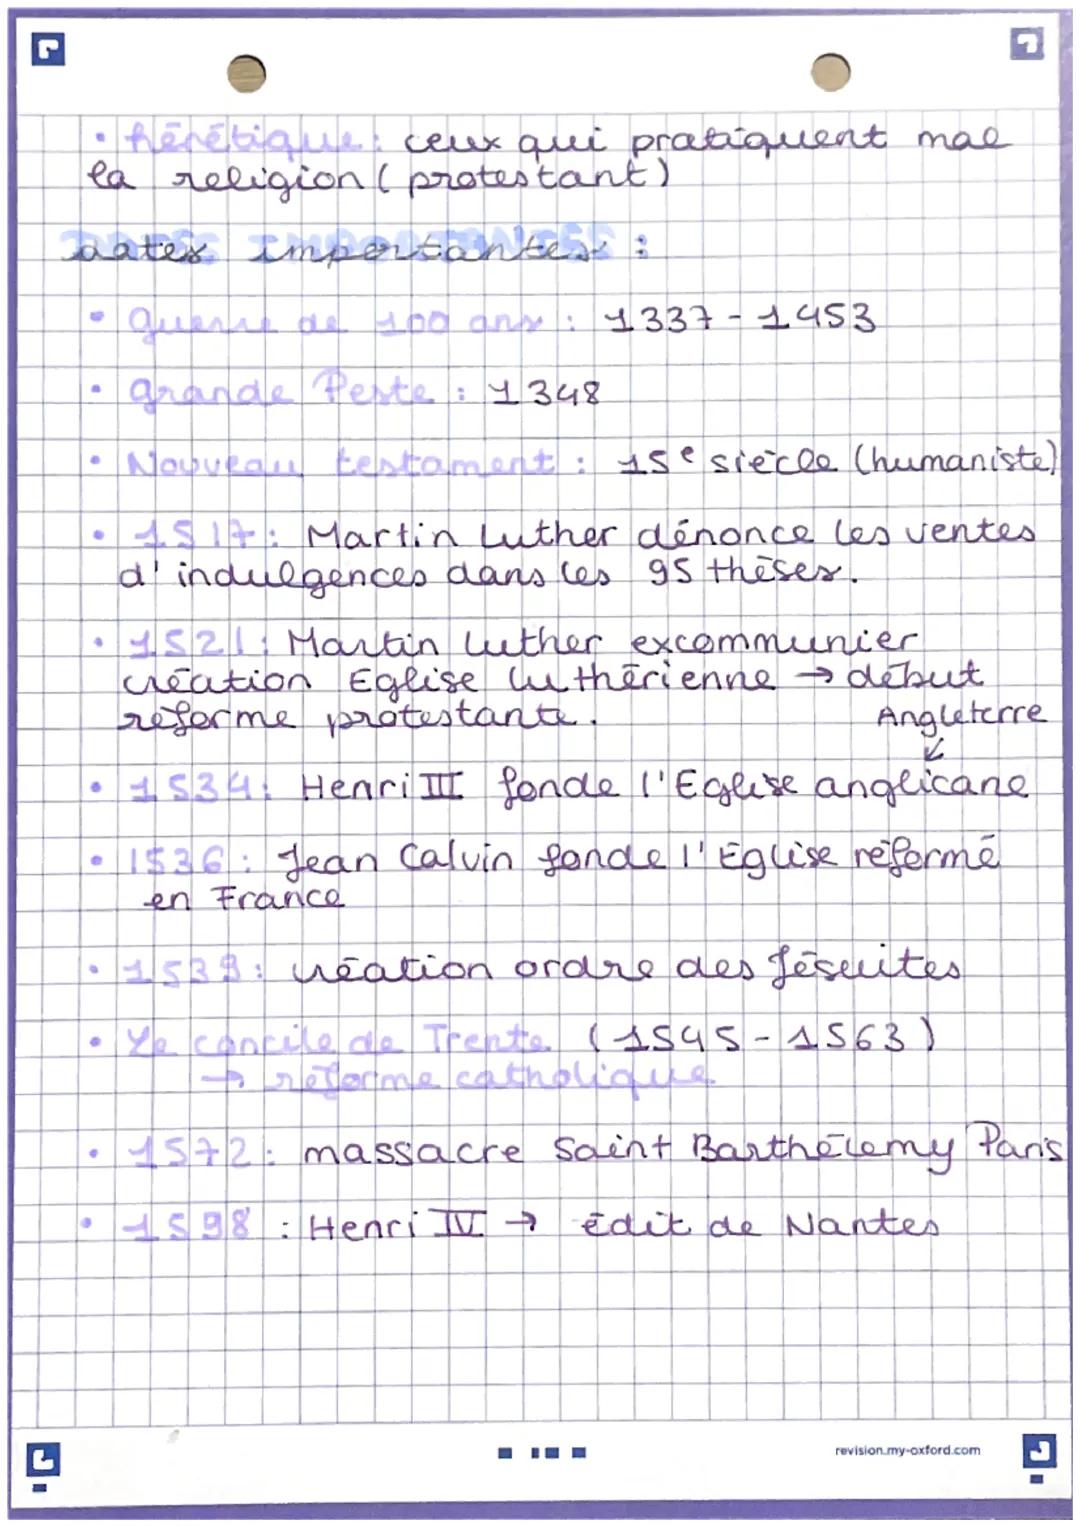 • hérétique : ceux qui pratiquent mal
la religion (protestant)
dates importantes :
• guerre de 100 ans : 1337 - 1453
• grande Peste : 1348
• Nouveau testament : 15e siècle (humaniste)
• 1517 : Martin Luther dénonce les ventes
d'indulgences dans les 95 thèses.
• 1521 : Martin Luther excommunier
création Eglise luthérienne → début
réforme protestante.
Angleterre
↙
• 1534 : Henri III fonde l'Eglise anglicane
• 1536 : Jean Calvin fonde l'Eglise réformé
en France
• 1539 : création ordre des Jésuites
• Le concile de Trente (1545 - 1563)
→ réforme catholique
• 1572 : massacre Saint Barthélemy Paris
• 1598 : Henri IV → édit de Nantes
revision.my-oxford.com